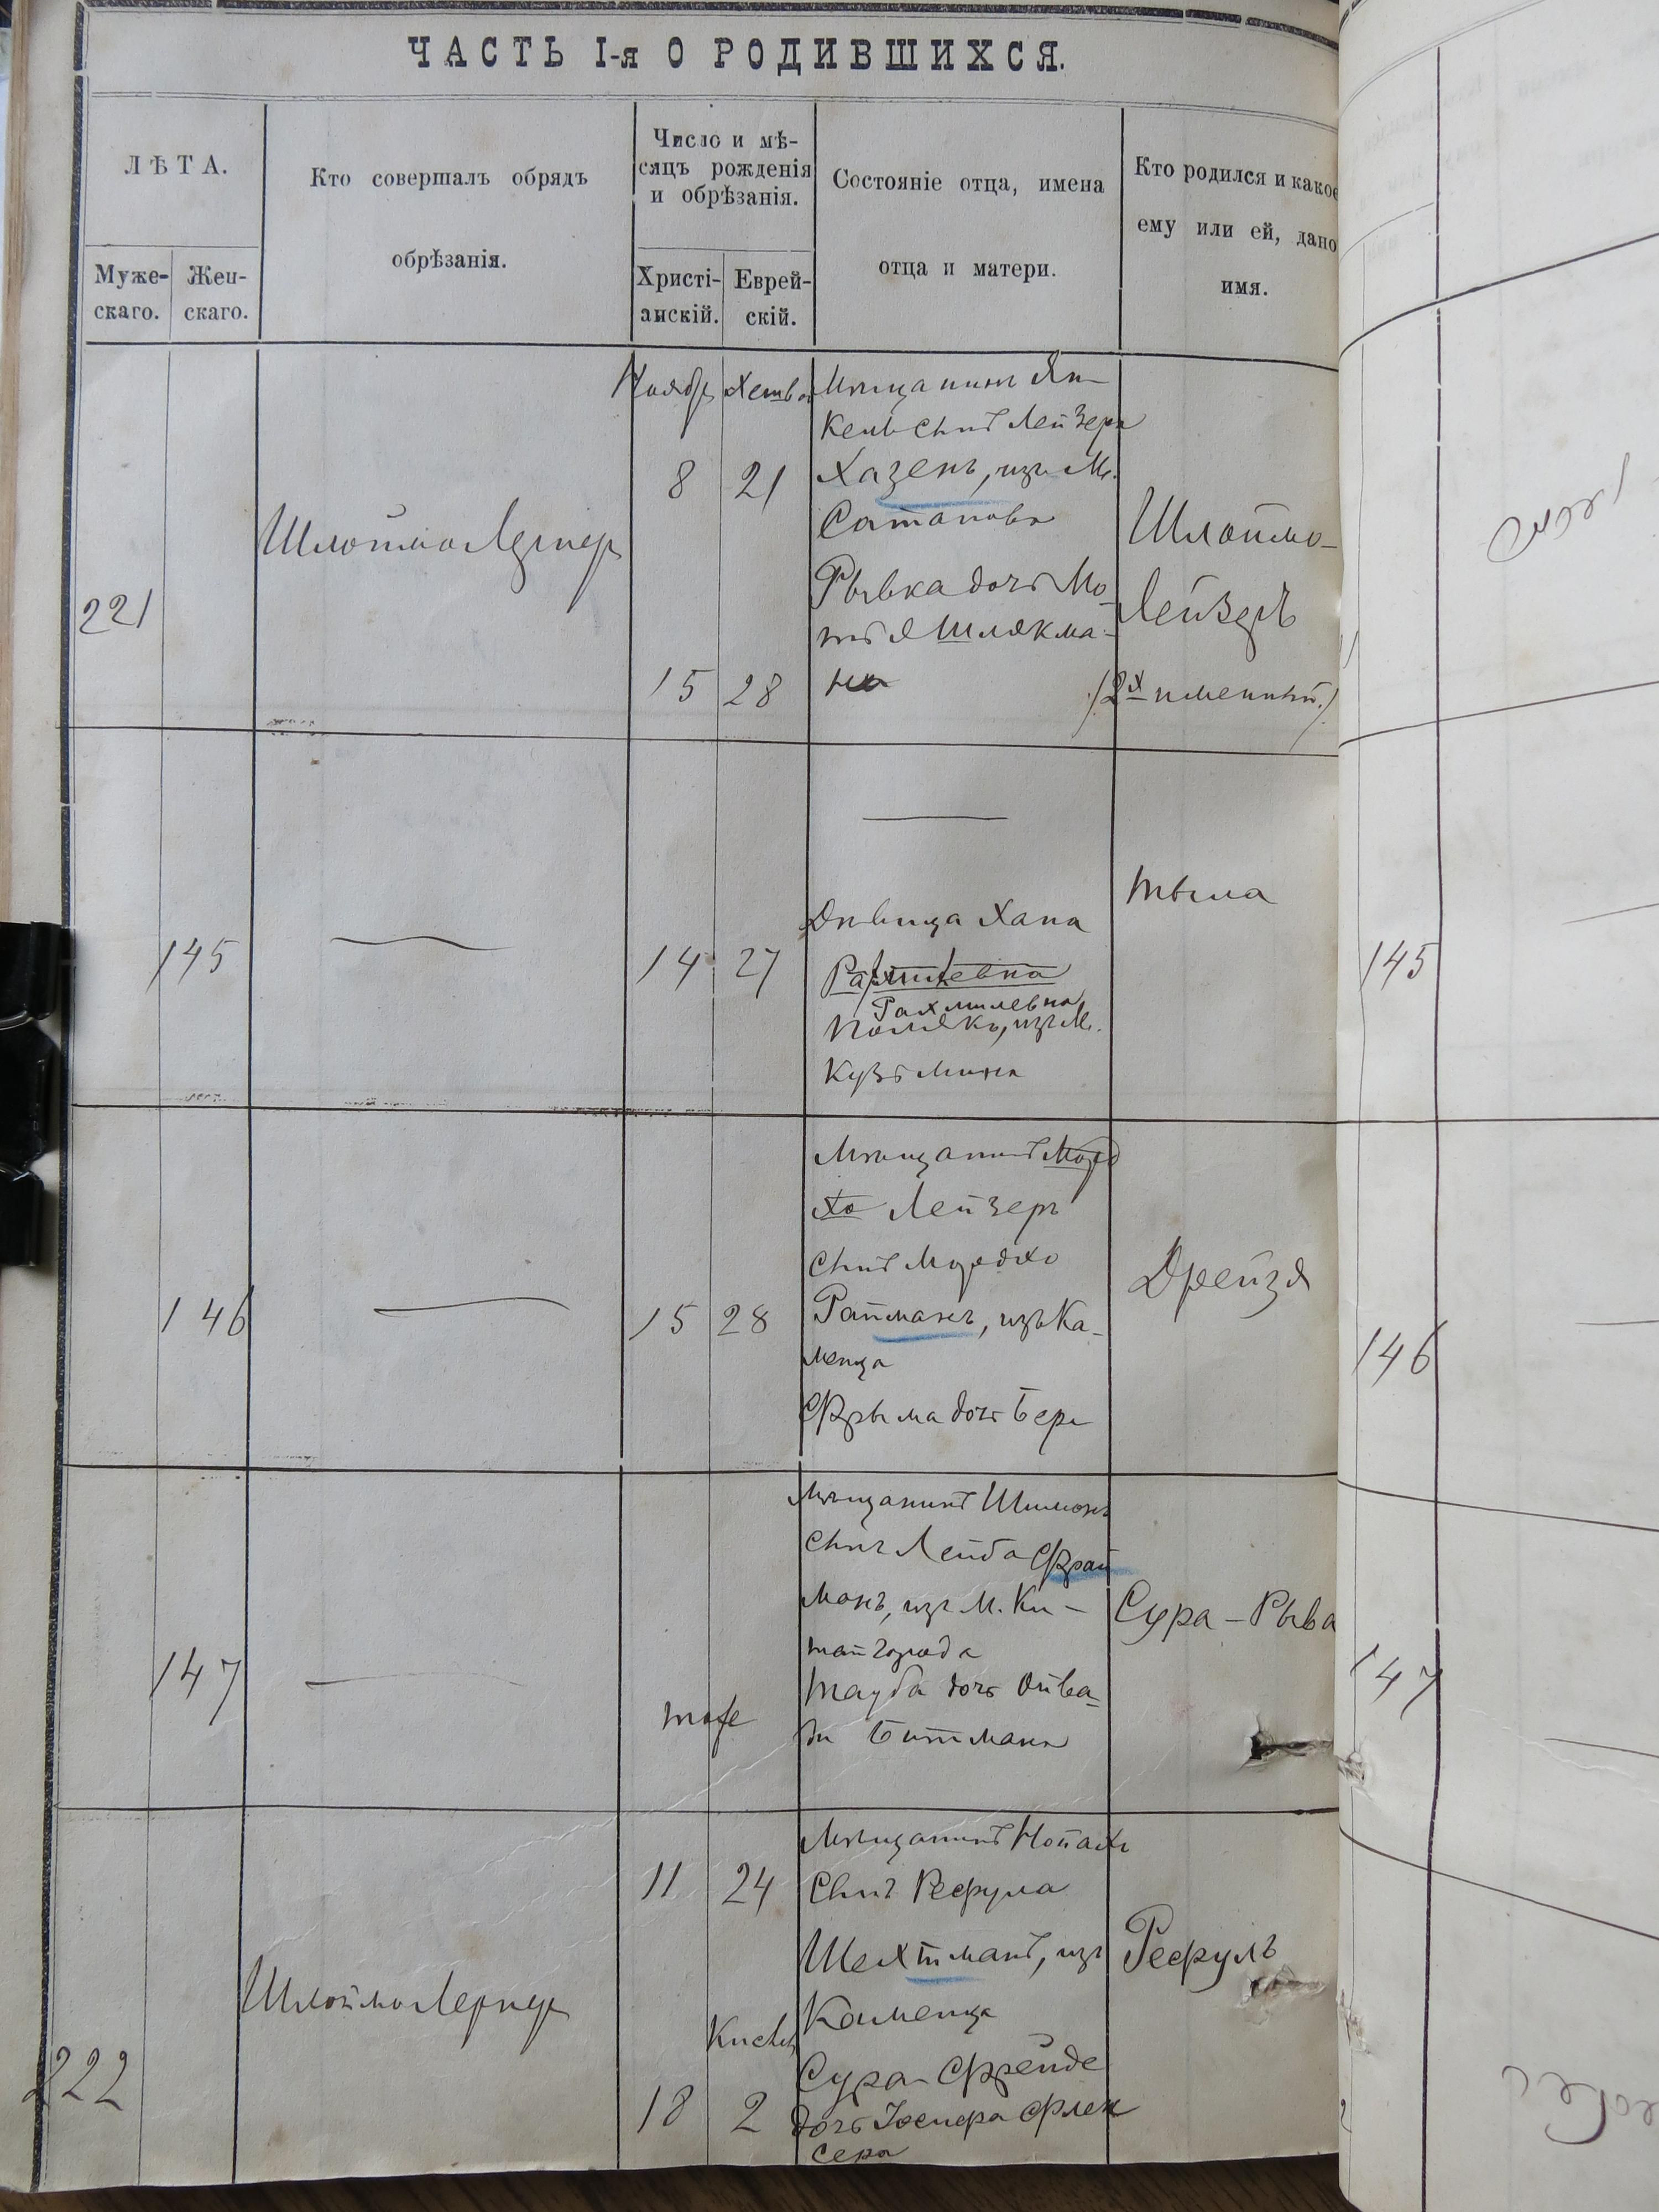 ЧАСТЬ I-я О РОДИВШИХСЯ.
ЛѢТА.
Муже-
скаго.
Жен-
скаго.
Кто совершалъ обрядъ
обрѣзанія.
Число и мѣ-
сяцъ рожденія
и обрѣзанія.
Христі-
анскій.
Еврей-
скій.
Состояніе отца, имена
отца и матери.
Кто родился и какое
ему или ей, дано
имя.
221
Шлоймо Лернер
Ноябр
8
15
21
28
Мѣщанинъ Ян-
кель сынъ Лейзера
Хазенъ, изъ М.
Сатанова
Рывка дочь Мо-
тя Шлякма-
на
Шлоймо-
Лейзеръ
/2х именный./
145
14
27
Дѣвица Хана
Рахмилевна
Полякъ, изъ М.
Кузьмина
Тыла
145
146
15
28
Мѣщанинъ Морд
хо Лейзеръ
сынъ Мордхо
Ройтманъ, изъ Ка-
менца
Фрыма дочь Бера
Дрейзя
146
147
тоже
Мѣщанинъ Шимонъ
сынъ Лейба Фрай
манъ, изъ М. Ки-
тайгорода
Тауба дочь Ойва-
Битмана
Сура-Рыва
147
222
Шлоймо Лернер
11
18
24
Кислев
2
Мѣщанинъ
сынъ Рефула
Шехтманъ, изъ
Каменца
Сура-Фрейде
дочь Іосифа Флек
сера
Рефулъ